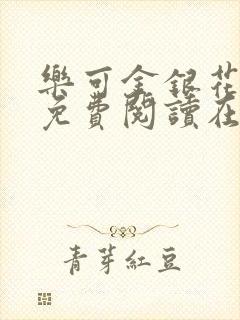 樂可金銀花
免費閱讀在
青芽紅豆